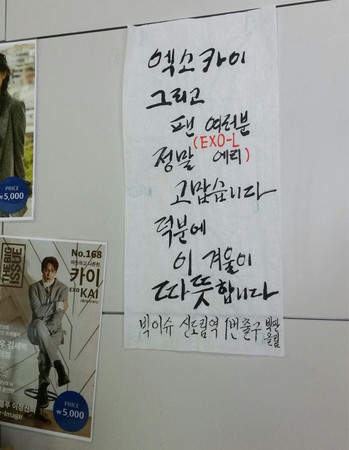 엑소 카이
그리고
팬 여러분
(EXO-L
정말 에리)
고맙습니다
덕분에
이 겨울이
따뜻합니다
빅이슈 신도림역 1번출구 빅판 올림
PRICE
₩5,000
THE BIG ISSUE
No.168
카이
EXO
KAI
PRICE
₩5,000